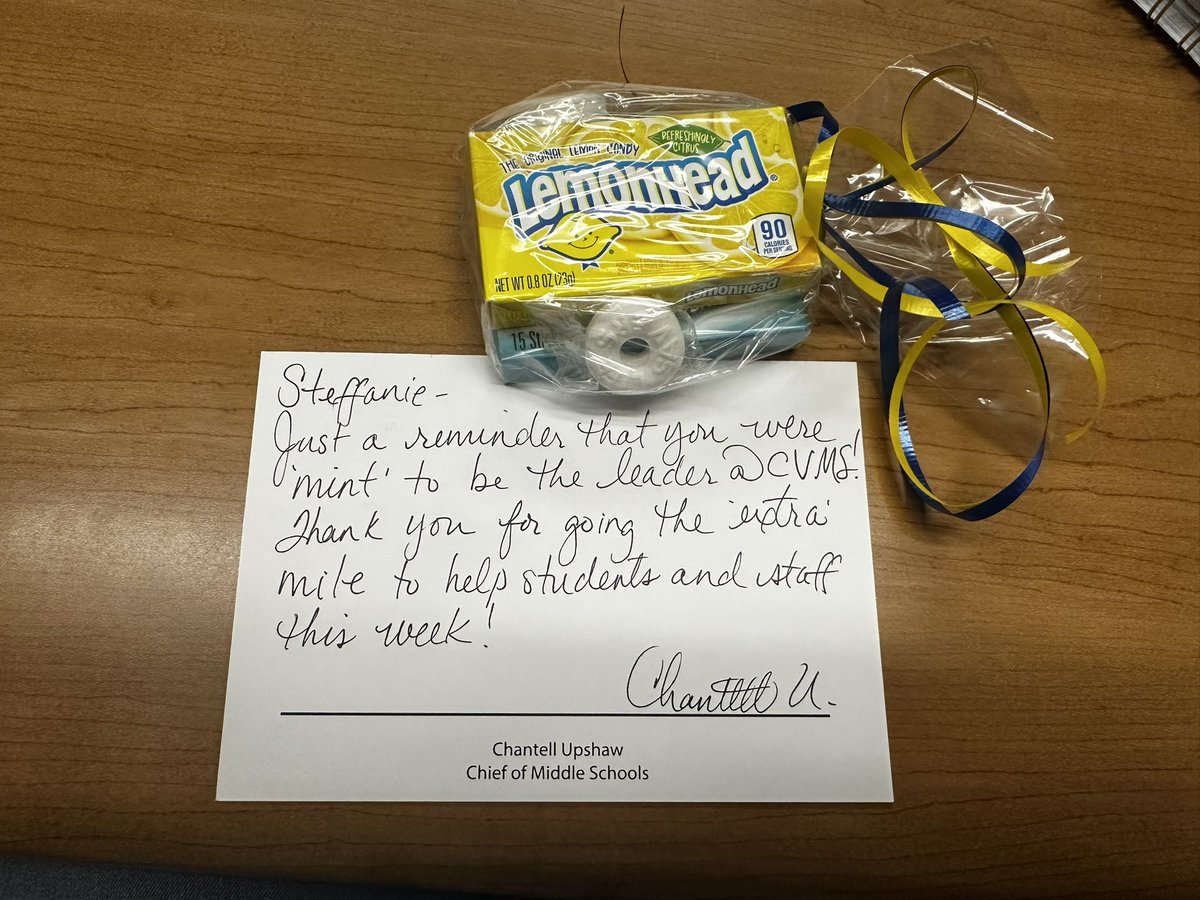 THE ORIGINAL LEMON CANDY
REFRESHINGLY
CITRUS
LEMONHEAD®
90
CALORIES
NET WT 0.8 OZ (23g)
LEMONHEAD
15
Steffanie-
Just a reminder that you were
'mint' to be the leader @ CVMS!
Thank you for going the 'extra'
mile to help students and staff
this week!
Chantell U.
Chantell Upshaw
Chief of Middle Schools